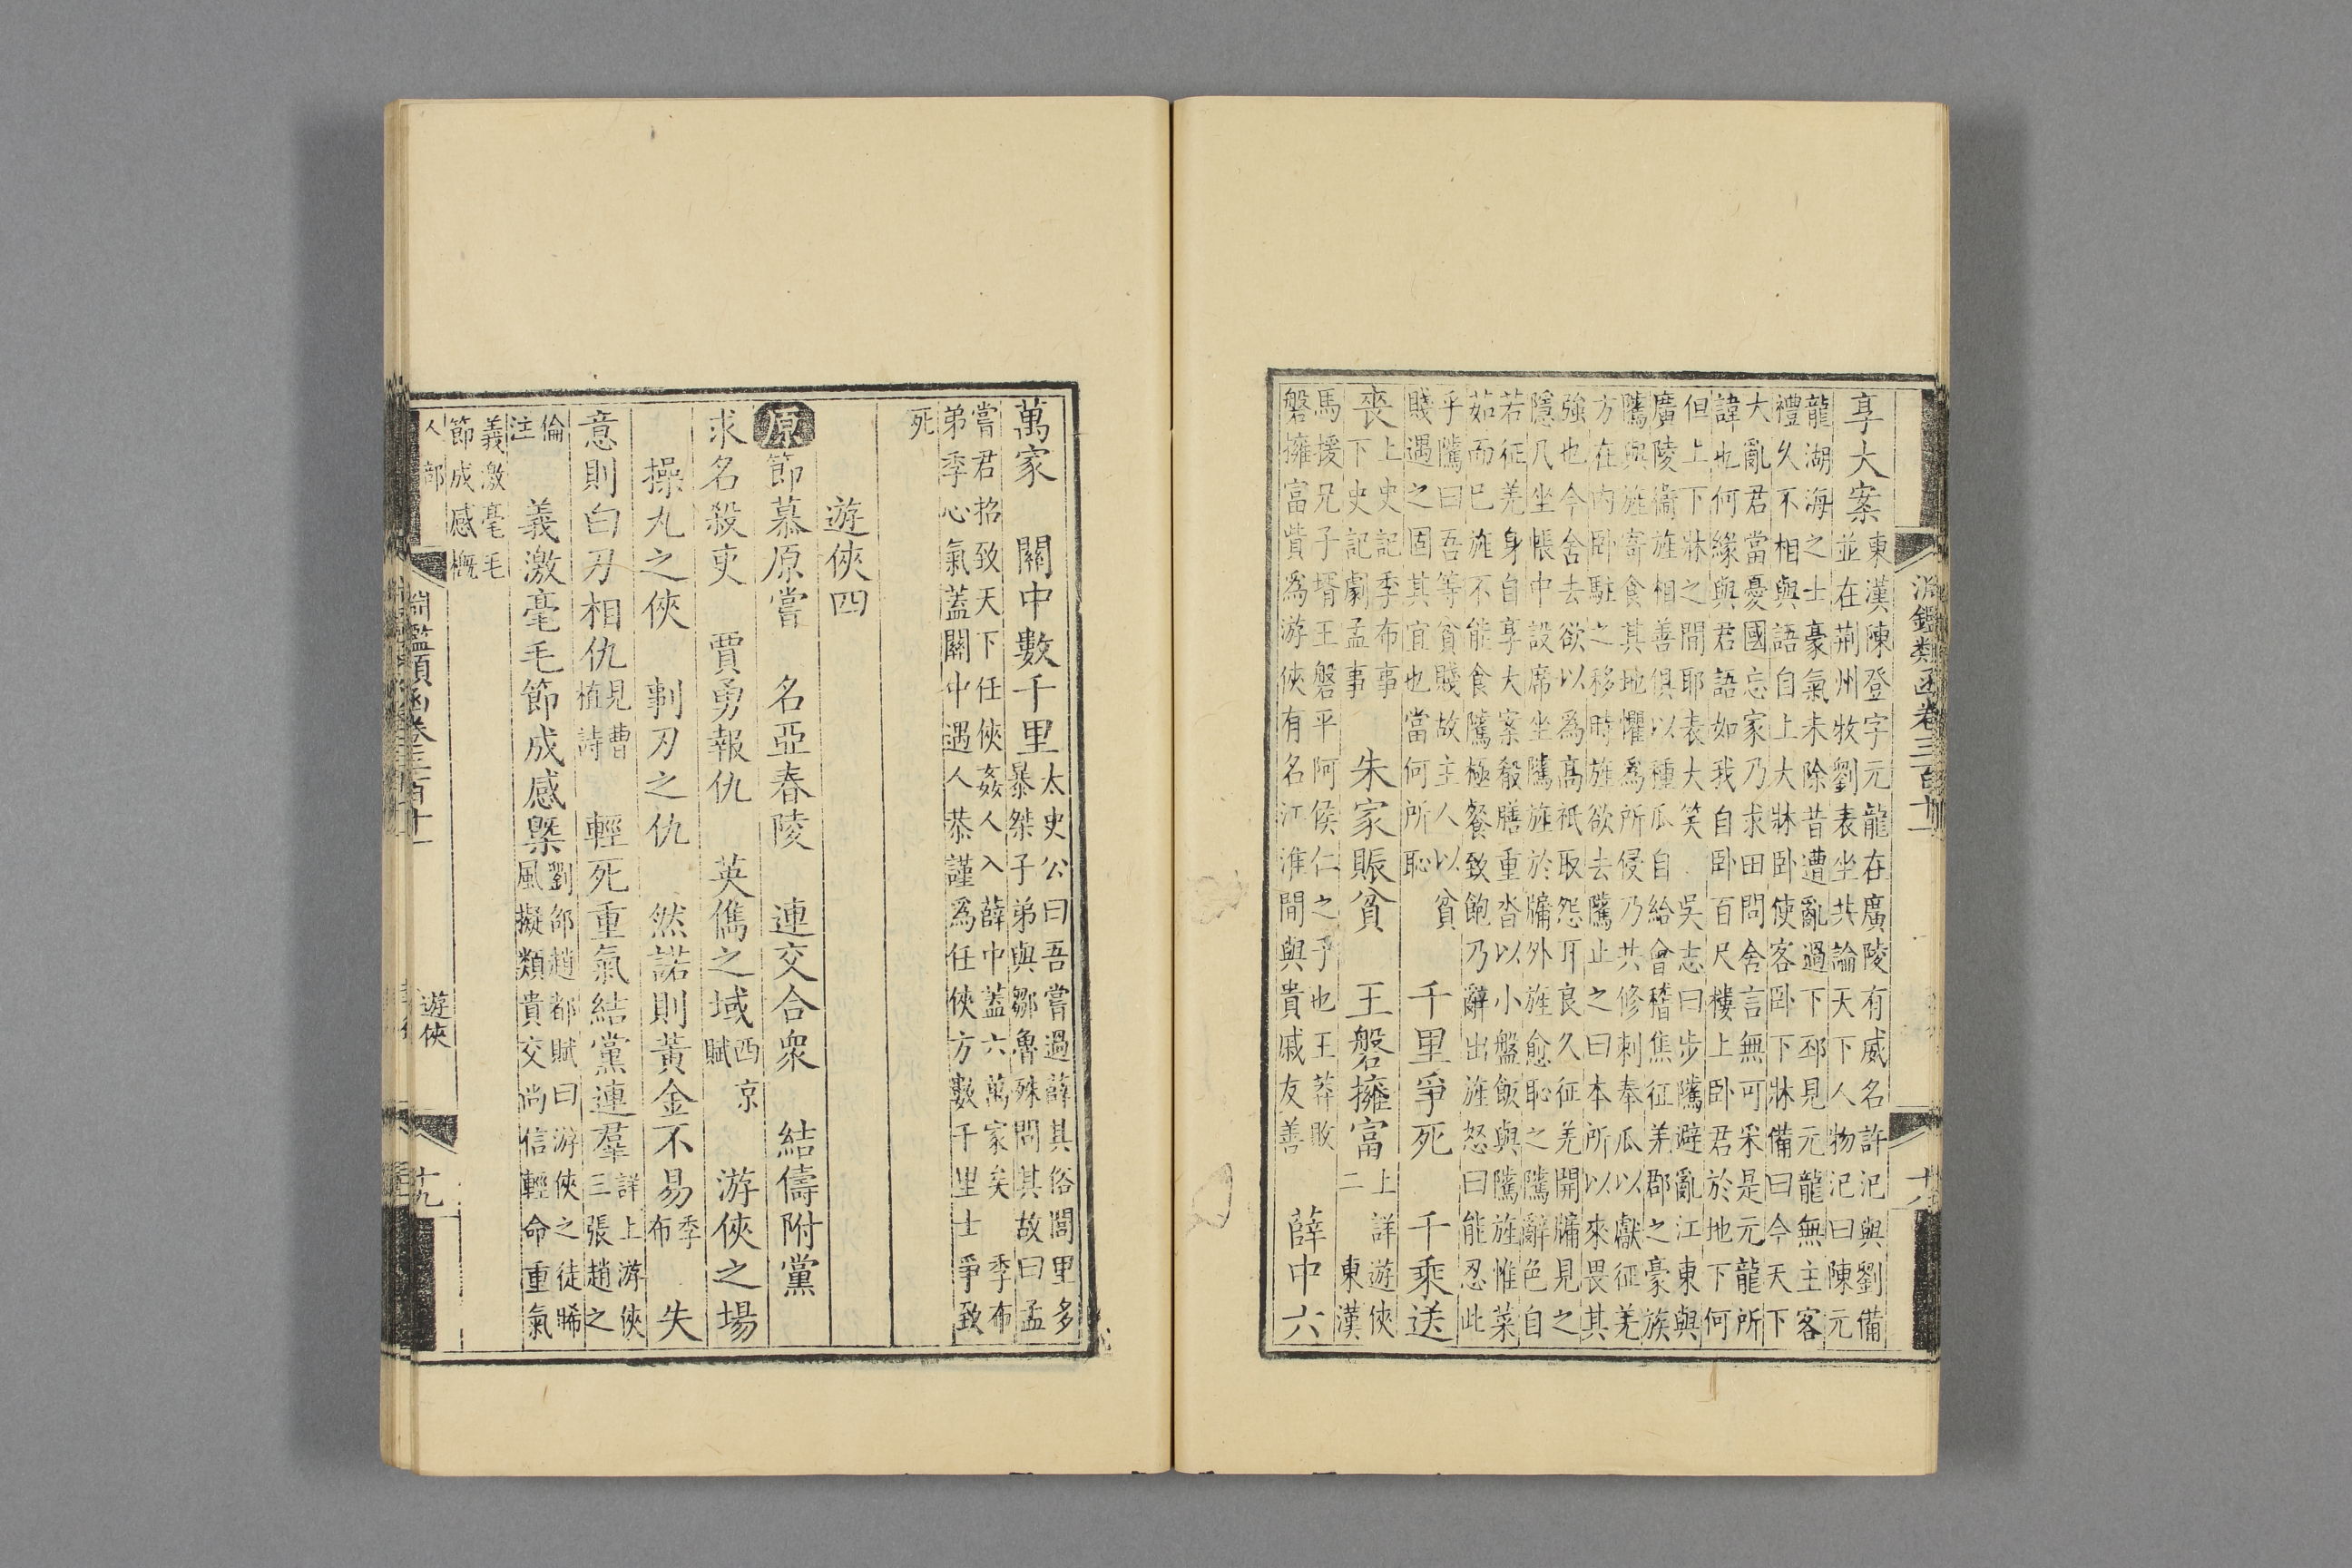 淵鑑類函卷三百十一
享大案東漢陳登字元龍在廣陵有威名許汜與劉備
並在荊州牧劉表坐共論天下人物汜曰陳元
龍湖海之士豪氣未除昔遭亂過下邳見元龍無主客
禮久不相與語自上大牀卧使客卧下牀備曰今天下
大亂君當憂國忘家乃求田問舍言無可采是元龍所
諱也何緣與君語如我自卧百尺樓上卧君於地下何
但上下牀之間耶表大笑 吳志曰步騭避亂江東與
廣陵衛旌相善俱以種瓜自給會稽焦征羌郡之豪族
騭與旌寄食其地懼爲所侵乃共修刺奉瓜以獻征羌
方在內卧駐之移時旌欲去騭止之曰本所以來畏其
強也今舍去欲以爲高祇取怨耳良久征羌開牖見之
隱几坐帳中設席坐騭旌於牖外旌愈恥之騭辭色自
若征羌身自享大案殽膳重沓以小盤飯與騭旌惟菜
茹而巳旌不能食騭極餐致飽乃辭出旌怒曰能忍此
乎騭曰吾等貧賤故主人以貧
賤遇之固其宜也當何所恥 千里爭死 千乘送
喪上史記季布事下史記劇孟事 朱家賑貧 王磐擁富上詳遊俠二東漢
馬援兄子壻王磐平阿侯仁之子也王莽敗
磐擁富貲爲游俠有名江淮間與貴戚友善 薛中六
萬家 關中數千里太史公曰吾嘗過薛其俗閭里多
暴桀子弟與鄒魯殊問其故曰孟
嘗君招致天下任俠姦人入薛中蓋六萬家矣 季布
弟季心氣蓋關中遇人恭謹爲任俠方數千里士爭致
死
遊俠四
原節慕原嘗 名亞春陵 連交合衆 結儔附黨
求名殺吏 賈勇報仇 英儁之域西京賦 游俠之場
操丸之俠 剚刃之仇 然諾則黃金不易季布 失
意則白刃相仇見曹植詩 輕死重氣結黨連羣詳上游俠三張趙之
倫注 義激毫毛節成感槩劉邵趙都賦曰游俠之徒晞
風擬類貴交尚信輕命重氣
義激毫毛
節成感概
人部 淵鑑類函卷三百十一 遊俠 十九